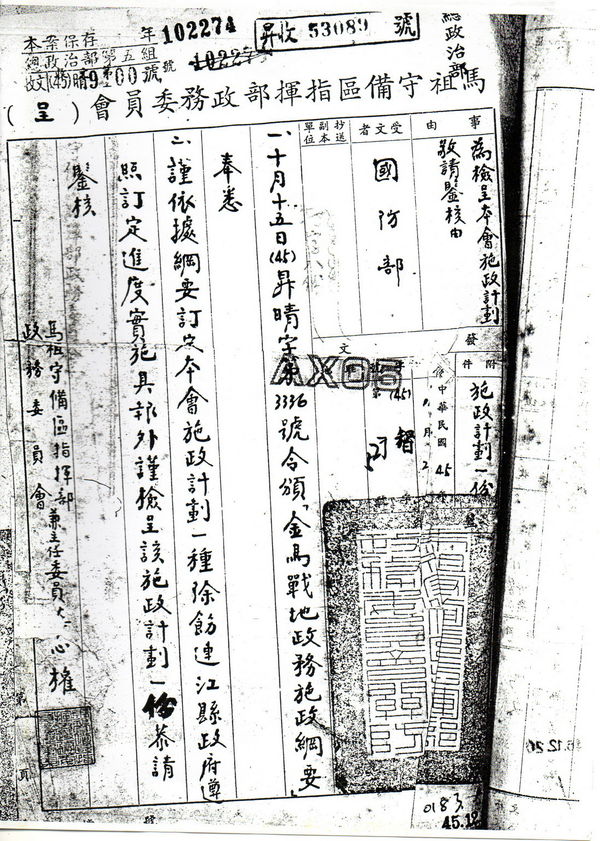 總政治部
本案保存 年 102274
總政治部第五組
昇收 53089 號
馬祖守備區指揮部政務委員會（呈）
事由
為檢呈本會施政計劃
敬請鑒核由
受文者
國防部
抄送副本單位
附件
施政計劃一份
發文
中華民國45年
(45)
AX05
一、十月十五日(45)昇晴字第3336號令頒「金馬戰地政務施政綱要」
奉悉
二、謹依據綱要訂定本會施政計劃一種除飭連江縣政府遵
照訂定進度實施具報外謹檢呈該施政計劃一份恭請
鑒核
馬祖守備區指揮部
政務委員會
兼主任委員
心權
0183
45.12